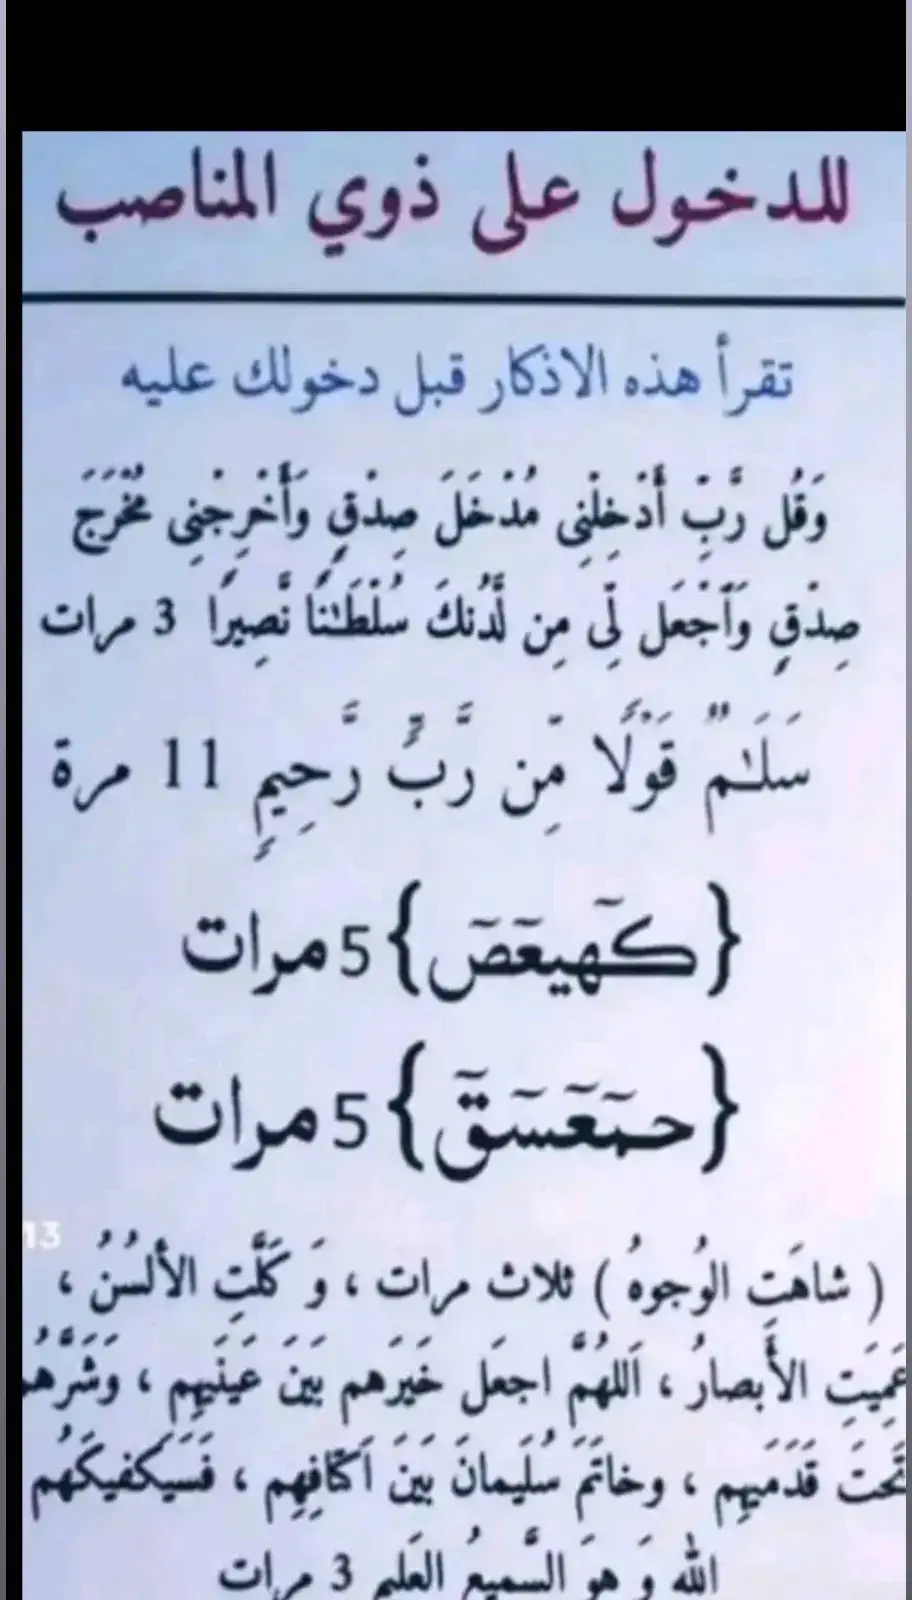 للدخول على ذوي المناصب
تقرأ هذه الاذكار قبل دخولك عليه
وَقُل رَّبِّ أَدْخِلْنِى مُدْخَلَ صِدْقٍ وَأَخْرِجْنِى مُخْرَجَ
صِدْقٍ وَٱجْعَل لِّى مِن لَّدُنكَ سُلْطَـٰنًا نَّصِيرًا 3 مرات
سَلَـٰمٌ قَوْلًا مِّن رَّبٍّ رَّحِيمٍ 11 مرة
{كٓهيعٓصٓ} 5 مرات
{حمٓعٓسٓقٓ} 5 مرات
13
( شاهَتِ الوُجوهُ ) ثلاث مرات ، وَ كَلَّتِ الألسُنُ ،
عَمِيَتِ الأَبصارُ ، اَللهُمَّ اجعَل خَيرَهم بَينَ عَينَيهِم ، وَشَرَّهُم
تَحتَ قَدَمَيهِم ، وخاتَمَ سُلَيمانَ بَينَ اَكتافِهِم ، فَسَيَكفيكَهُم
الله وَ هوَ السَّميعُ العَليم 3 مرات